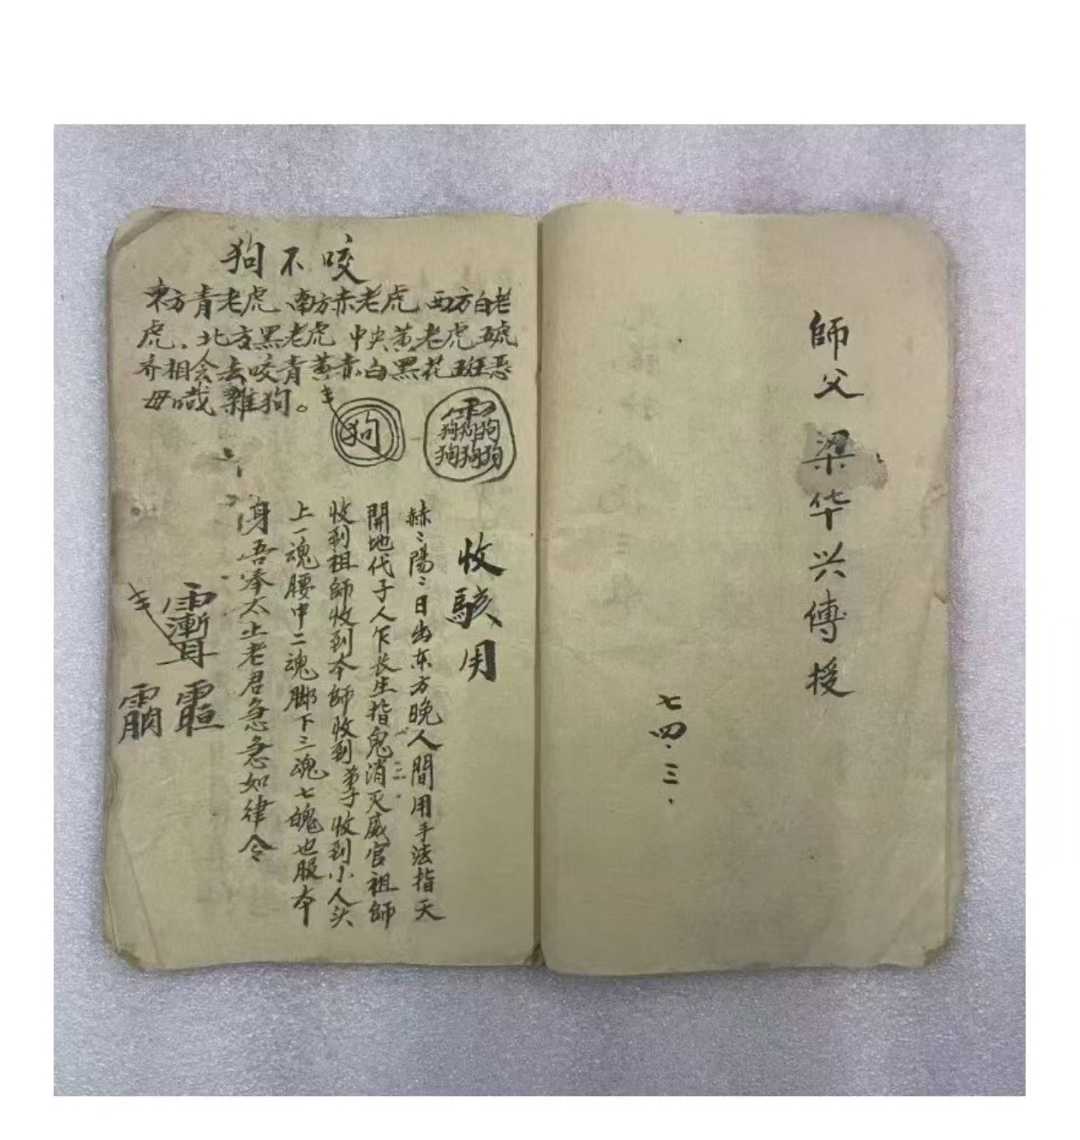 狗不咬
東方青老虎.南方赤老虎.西方白老
虎.北方黑老虎 中央黄老虎五虎
齐相会去咬青黄赤白黑花班恶
毋哉雜狗。
狗
收駭用
赫〻陽〻日出东方晚人間用手法指天
開地代子人乍長生指鬼消灭威官祖師
收到祖師收到本師收到弟子收到小人头
上一魂腰中二魂脚下三魂七魄也服本
身吾奉太上老君急急如律令
師父梁华兴傳授
七四.三.